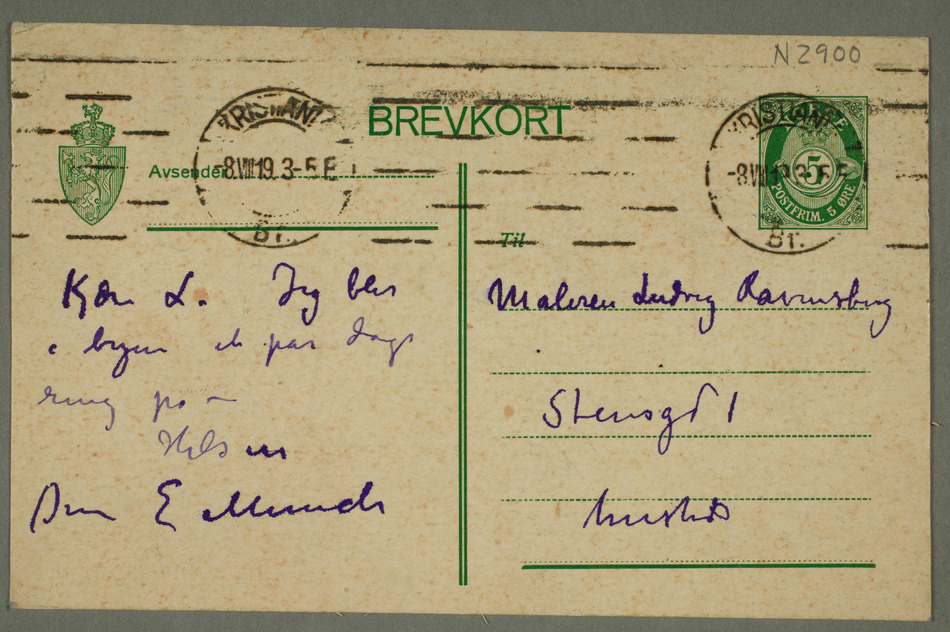 N 2900
BREVKORT
KRISTIANIA
-8.VIII.19.3-5 E
Br.
KRISTIANIA
-8.VIII.19.3-5 E
Br.
POSTFRIM. 5 ØRE
5
Avsender
Kjære L. Jeg blir
i byen et par dage
ring på –
Hilsen
Din E Munch
Til
Maleren Ludvig Ravensberg
Stensgd 1